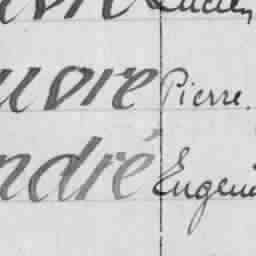 Lucien
uvre Pierre.
ndré Eugeni